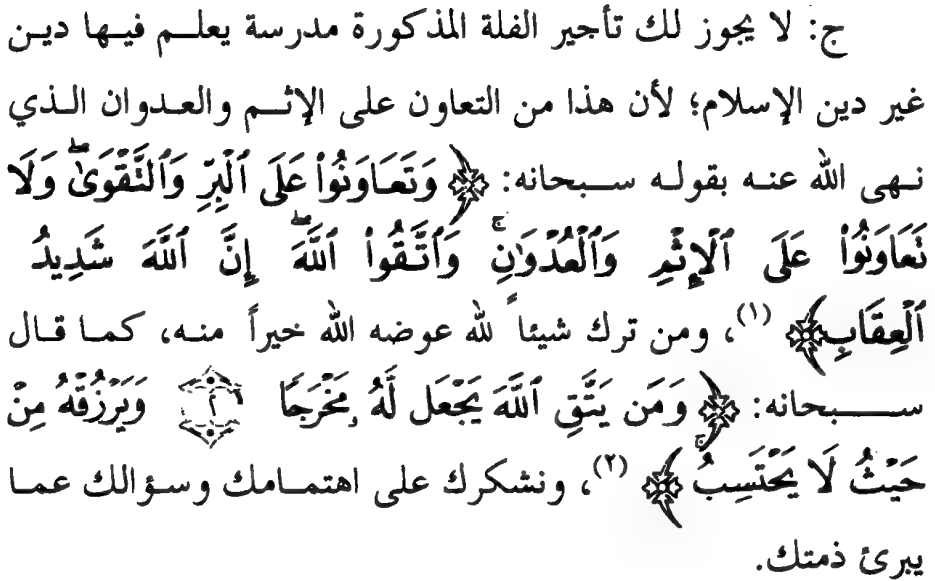 ج: لا يجوز لك تأجير الفلة المذكورة مدرسة يعلم فيها دين
غير دين الإسلام؛ لأن هذا من التعاون على الإثم والعدوان الذي
نهى الله عنه بقوله سبحانه: ﴿ وَتَعَاوَنُوا۟ عَلَى ٱلْبِرِّ وَٱلتَّقْوَىٰ ۖ وَلَا
تَعَاوَنُوا۟ عَلَى ٱلْإِثْمِ وَٱلْعُدْوَٰنِ ۚ وَٱتَّقُوا۟ ٱللَّهَ ۖ إِنَّ ٱللَّهَ شَدِيدُ
ٱلْعِقَابِ ﴾ (١)، ومن ترك شيئاً لله عوضه الله خيراً منه، كما قال
سبحانه: ﴿ وَمَن يَتَّقِ ٱللَّهَ يَجْعَل لَّهُۥ مَخْرَجًا ٢ وَيَرْزُقْهُ مِنْ
حَيْثُ لَا يَحْتَسِبُ ۚ ﴾ (٢)، ونشكرك على اهتمامك وسؤالك عما
يبرئ ذمتك.